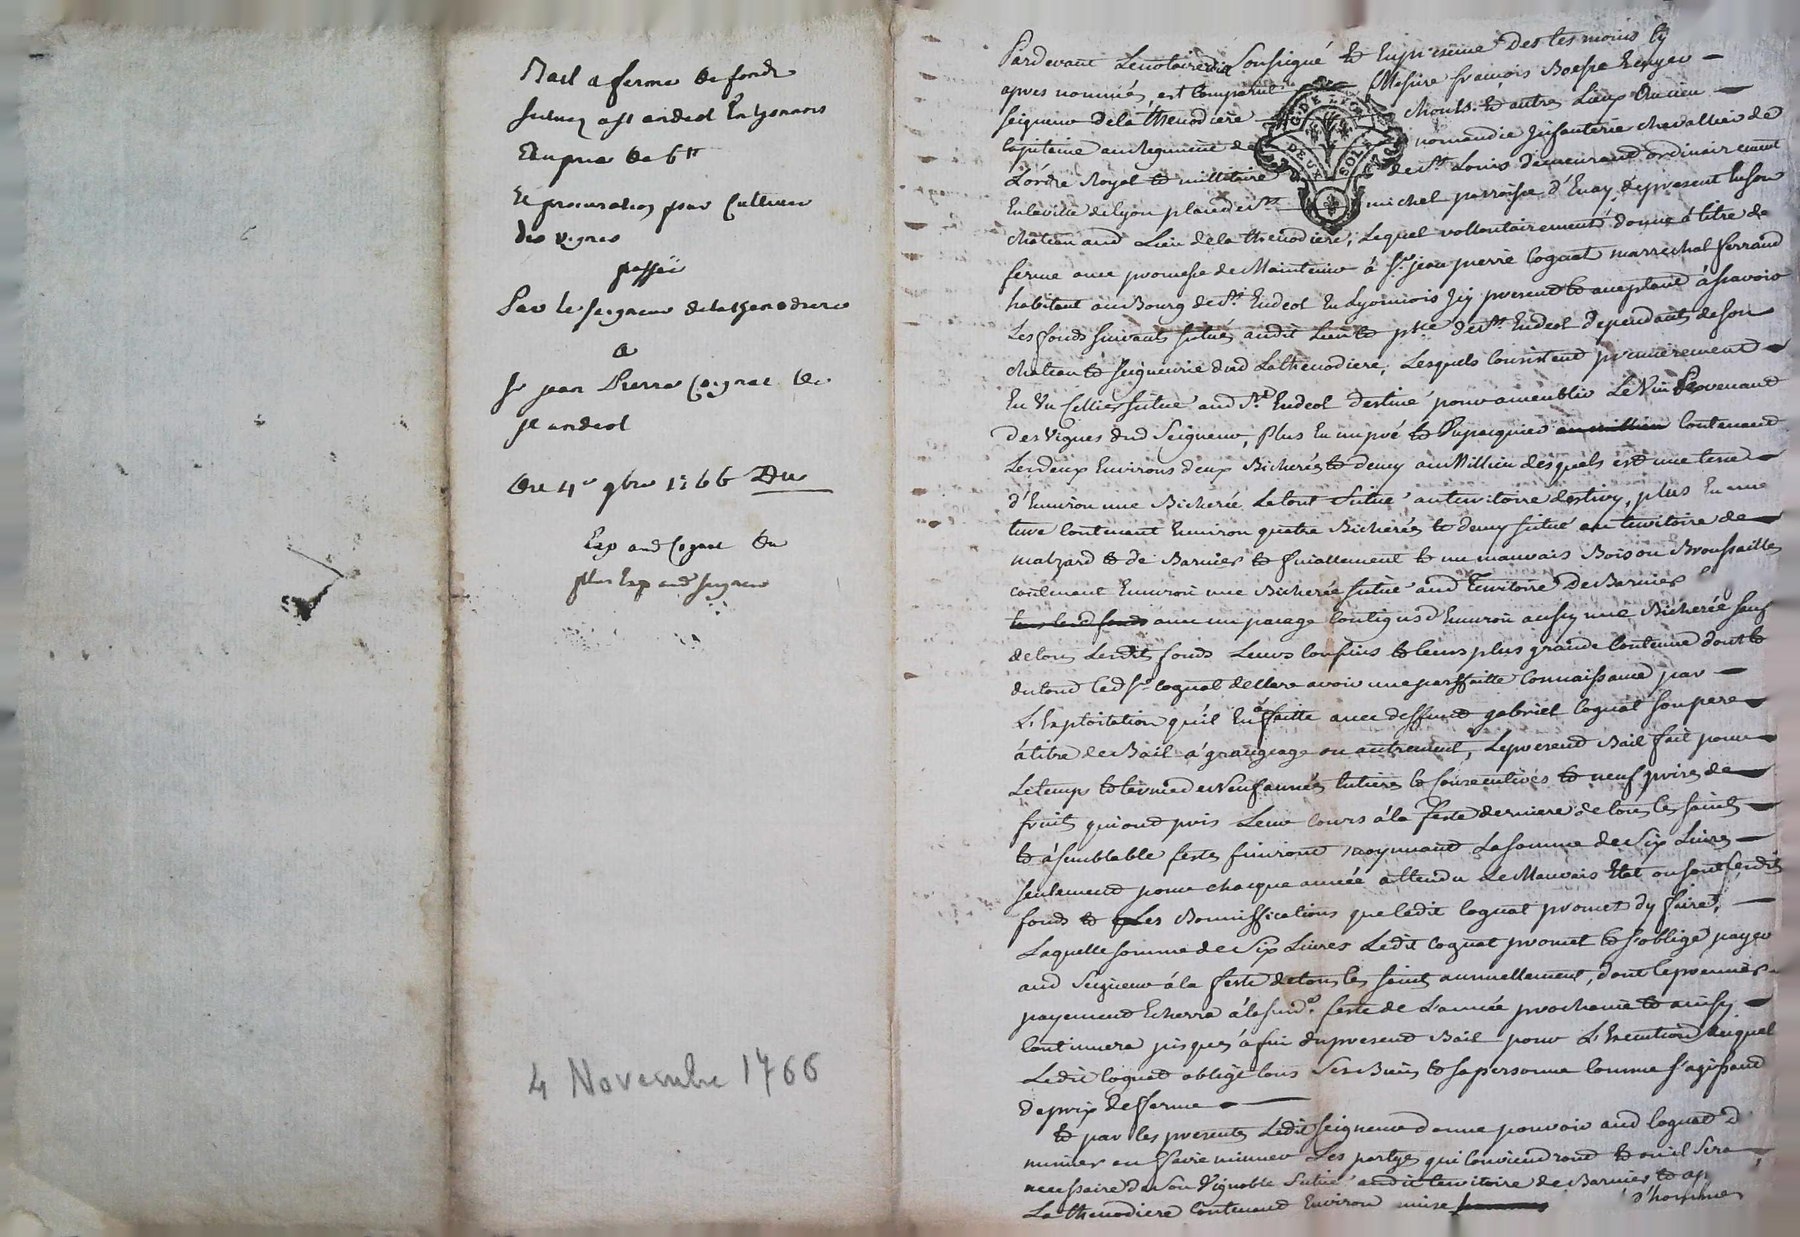 Bail a ferme de fonds
situez a st andeol En lyonnois
Du prix de 6 tt
Et procuration pour Cultiver
des vignes
passée
Par le seigneur de la thenodiere
a
sr jean Pierre Cognat de
st andeol
Du 4e 9bre 1766
Exp aud Cognat
plus Exp aud seigneur
4 Novembre 1766
Pardevant Le notaire Soussigné Et En presence Des tesmoins Cy
apres nommés, est Comparu Messire françois Boesse Ecuyer
seigneur de la thenodiere et autres Lieux Ancien
Capitaine au regiment de normandie Infanterie chevallier de
L'ordre Royal Et militaire de St Louis Demeurant ordinairement
En la ville de lyon place de St michel parroisse d'Enay, de present En son
chateau aud Lieu de la thenodiere, Lequel vollontairement donne à titre de
ferme avec promesse de Maintenir à Sr jean pierre Cognat marrechal ferrand
habitant au Bourg de St Andeol En Lyonnois Icy present Et acceptant à sçavoir
Les fonds suivants situés audit Lieu Et psse de St Andeol Dependants de son
chateau Et seigneurie dud Lathenodiere, Lesquels Consistent premierement
En Un Cellier situé aud St Andeol destiné pour ameublir Le Vin Provenant
Des Vignes dud Seigneur, Plus En un pré Et Pupasquier au millieu Contenant
Lesdeux Environs deux Bicherés Et demy au Millieu desquels est une terre
d'Environ une Bicherée Le tout situé au territoire, plus En une
terre Contenant Environ quatre Bicherés Et demy situé au territoire de
malzard Et de Barnier Et finallement Et un mauvais Bois ou Broussailles
contenant Environ une Bicherée situé aud Territoire De Barnier
tous lesd fonds avec un passage Contigus d'Environ aussy une Bicherée sauf
de tous Lesdits fonds Leurs Confins Et leurs plus grande Contenue dont Et
du tout Led Sr Cognat declare avoir une parfaitte Connaissance par
L'Exploitation qu'il En à faitte avec deffunt gabriel Cognat son pere
à titre de Bail à grangeage ou autrement, Le present Bail fait pour
Le temps Et terme de Neuf années Entieres Et Consecutives Et neuf prises de
fruits qui ont pris Leur Cours à la feste derniere de tous les saints
Et à semblable feste finiront moyennant La somme de Six Livres
seulement pour chacque année attendu Le Mauvais Etat ou sont Lesdits
fonds Et Les Bonniffications que ledit Cognat promet d'y faire,
Laquelle somme de Six Livres Ledit Cognat promet Et s'oblige payer
aud Seigneur à la feste de tous les saints annuellement, dont le premier
payement Echerra à la sud.e feste de L'année prochaine Et ainsy
Continuera jusques à fin du present Bail pour L'Execution duquel
Ledit Cognat oblige tous Ses Biens Et sa personne Comme s'agissant
de prix de ferme
Et par les presentes Ledit seigneur donne pouvoir aud Cognat d
miner ou faire minner Les partyes qui Conviendront Et ou il Sera
necessaire dans son Vignoble situé audit territoire de Barnier Et ap
La thenodiere Contenant Environ d'hommes